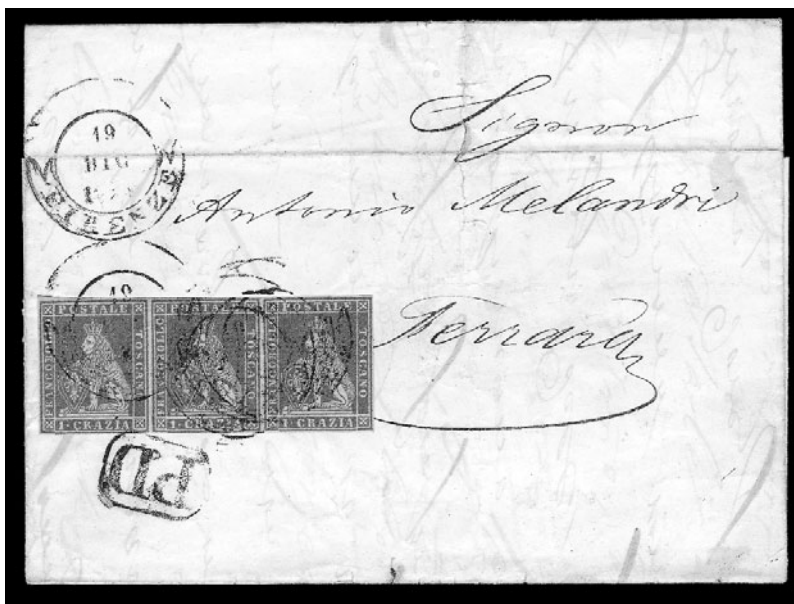 Signor
Antonio Melandri
Ferrara
19
DIC
FIRENZE
19
FRANCOBOLLO POSTALE TOSCANO
1 CRAZIA
FRANCOBOLLO POSTALE TOSCANO
1 CRAZIA
FRANCOBOLLO POSTALE TOSCANO
1 CRAZIA
PD